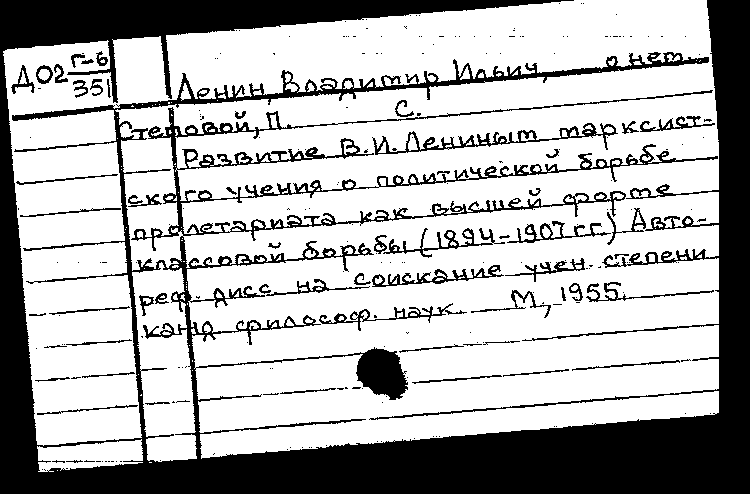 Д02 Г-6/351
Ленин, Владимир Ильич, о нем.
Степовой, П. С.
Развитие В.И. Лениным марксист-
ского учения о политической борьбе
пролетариата как высшей форме
классовой борьбы (1894-1907 гг.) Авто-
реф. дисс. на соискание учен. степени
канд. философ. наук. М., 1955.